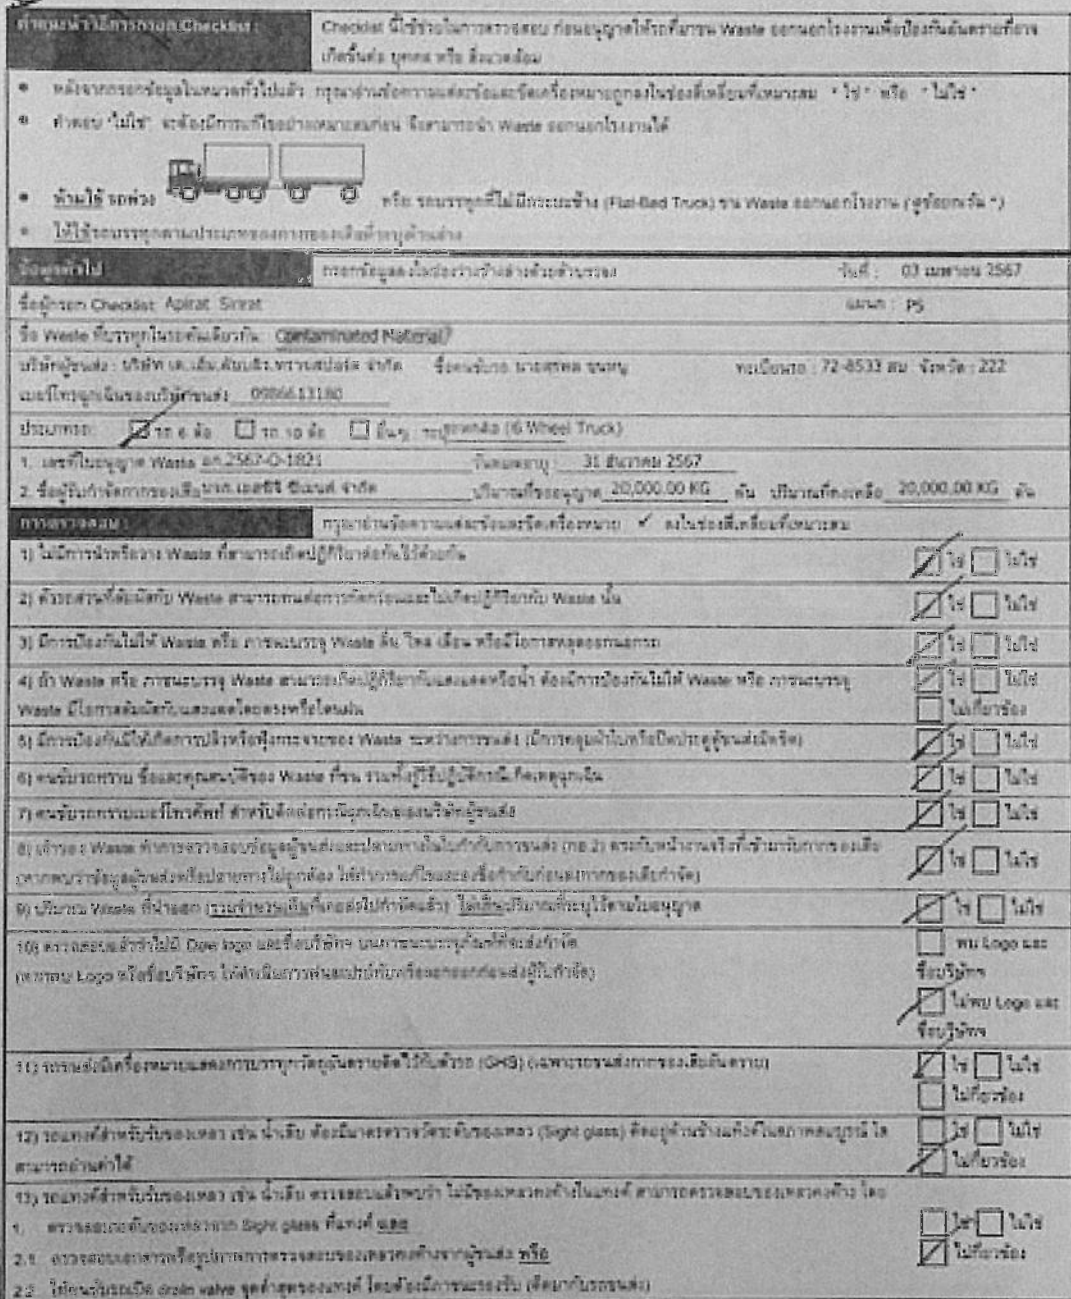 คำแนะนำวิธีการกรอก Checklist :
Checklist นี้ใช้ช่วยในการตรวจสอบ ก่อนอนุญาตให้รถที่มาขน Waste ออกนอกโรงงานเพื่อป้องกันอันตรายที่อาจ
เกิดขึ้นต่อ บุคคล หรือ สิ่งแวดล้อม
หลังจากกรอกข้อมูลในหมวดทั่วไปแล้ว กรุณาอ่านข้อความแต่ละข้อและขีดเครื่องหมายถูกลงในช่องสี่เหลี่ยมที่เหมาะสม "ใช่" หรือ "ไม่ใช่"
คำตอบ "ไม่ใช่" จะต้องมีการแก้ไขอย่างเหมาะสมก่อน จึงสามารถนำ Waste ออกนอกโรงงานได้
ห้ามใช้ รถพ่วง หรือ รถบรรทุกที่ไม่มีกระบะข้าง (Flat-Bed Truck) ขน Waste ออกนอกโรงงาน (ดูข้อยกเว้น *)
ให้ใช้รถบรรทุกตามประเภทของกากของเสียที่ระบุด้านล่าง
ข้อมูลทั่วไป กรอกข้อมูลลงในช่องว่างข้างล่างด้วยตัวบรรจง วันที่ : 03 เมษายน 2567
ชื่อผู้กรอก Checklist: Apirat Sinrat แผนก : PS
ชื่อ Waste ที่บรรทุกในรถคันเดียวกัน Contaminated Material7
บริษัทผู้ขนส่ง : บริษัท เค.เอ็ม.ดับบลิว.ทรานสปอร์ต จำกัด ชื่อคนขับรถ ทะเบียนรถ : 72-8533 สบ จังหวัด : 222
เบอร์โทรฉุกเฉินของบริษัทขนส่ง 0986613180
ประเภทรถ: รถ 6 ล้อ รถ 10 ล้อ อื่นๆ ระบุ (6 Wheel Truck)
1. เลขที่ใบอนุญาต Waste อก.2567-O-1821 วันหมดอายุ 31 ธันวาคม 2567
2. ชื่อผู้รับกำจัดกากของเสีย บจก. เอสซีจี ซิเมนต์ จำกัด ปริมาณที่ขออนุญาต 20,000.00 KG ตัน ปริมาณที่คงเหลือ 20,000.00 KG ตัน
การตรวจสอบ : กรุณาอ่านข้อความแต่ละข้อและขีดเครื่องหมาย ✓ ลงในช่องสี่เหลี่ยมที่เหมาะสม
1) ไม่มีการนำหรือวาง Waste ที่สามารถเกิดปฏิกิริยาต่อกันไว้ด้วยกัน ใช่ ไม่ใช่
2) ตัวรถส่วนที่สัมผัสกับ Waste สามารถทนต่อการกัดกร่อนและไม่เกิดปฏิกิริยากับ Waste นั้น ใช่ ไม่ใช่
3) มีการป้องกันไม่ให้ Waste หรือ ภาชนะบรรจุ Waste ลื่น ไหล เลื่อน หรือมีโอกาสหลุดออกนอกรถ ใช่ ไม่ใช่
4) ถ้า Waste หรือ ภาชนะบรรจุ Waste สามารถเกิดปฏิกิริยากับแสงแดดหรือน้ำ ต้องมีการป้องกันไม่ให้ Waste หรือ ภาชนะบรรจุ ใช่ ไม่ใช่
Waste มีโอกาสสัมผัสกับแสงแดดโดยตรงหรือโดนฝน ไม่เกี่ยวข้อง
5) มีการป้องกันมิให้เกิดการปลิวหรือฟุ้งกระจายของ Waste ระหว่างการขนส่ง (มีการคลุมผ้าใบหรือปิดประตูตู้ขนส่งมิดชิด) ใช่ ไม่ใช่
6) คนขับรถทราบ ชื่อและคุณสมบัติของ Waste ที่ขน รวมทั้งรู้วิธีปฏิบัติกรณีเกิดเหตุฉุกเฉิน ใช่ ไม่ใช่
7) คนขับรถทราบเบอร์โทรศัพท์ สำหรับติดต่อกรณีฉุกเฉินของบริษัทผู้ขนส่ง ใช่ ไม่ใช่
8) เจ้าของ Waste ทำการตรวจสอบข้อมูลผู้ขนส่งและปลายทางในใบกำกับการขนส่ง (กอ.2) ตรงกับหน้างานจริงที่เข้ามารับกากของเสีย ใช่ ไม่ใช่
(หากพบว่าข้อมูลผู้ขนส่งหรือปลายทางไม่ถูกต้อง ให้ทำการแก้ไขและลงชื่อกำกับก่อนส่งกากของเสียกำจัด)
9) ปริมาณ Waste ที่นำออก (รวมจำนวนเดิมที่เคยส่งไปกำจัดแล้ว) ไม่เกินปริมาณที่ระบุไว้ตามใบอนุญาต ใช่ ไม่ใช่
10) ตรวจสอบแล้วว่าไม่มี Dow logo และชื่อบริษัทฯ บนภาชนะบรรจุภัณฑ์ที่จะส่งกำจัด พบ Logo และ
(หากพบ Logo หรือชื่อบริษัทฯ ให้ดำเนินการพ่นสเปรย์ทับหรือลอกออกก่อนส่งผู้รับกำจัด) ชื่อบริษัทฯ
ไม่พบ Logo และ
ชื่อบริษัทฯ
11) รถขนส่งมีเครื่องหมายแสดงการบรรทุกวัตถุอันตรายติดไว้กับตัวรถ (GHS) (เฉพาะรถขนส่งกากของเสียอันตราย) ใช่ ไม่ใช่
ไม่เกี่ยวข้อง
12) รถแทงค์สำหรับรับของเหลว เช่น น้ำเสีย ต้องมีมาตรตรวจวัดระดับของเหลว (Sight glass) ติดอยู่ด้านข้างแท้งค์ในสภาพสมบูรณ์ ใส ใช่ ไม่ใช่
สามารถอ่านค่าได้ ไม่เกี่ยวข้อง
13) รถแทงค์สำหรับรับของเหลว เช่น น้ำเสีย ตรวจสอบแล้วพบว่า ไม่มีของเหลวคงค้างในแทงค์ สามารถตรวจสอบของเหลวคงค้าง โดย
1. ตรวจสอบระดับของเหลวจาก Sight glass ที่แทงค์ และ ใช่ ไม่ใช่
2.1 ตรวจสอบเอกสารหรือรูปภาพการตรวจสอบของเหลวคงค้างจากผู้ขนส่ง หรือ ไม่เกี่ยวข้อง
2.2 ให้คนขับรถเปิด drain valve จุดต่ำสุดของแทงค์ โดยต้องมีภาชนะรองรับ (ติดมากับรถขนส่ง)